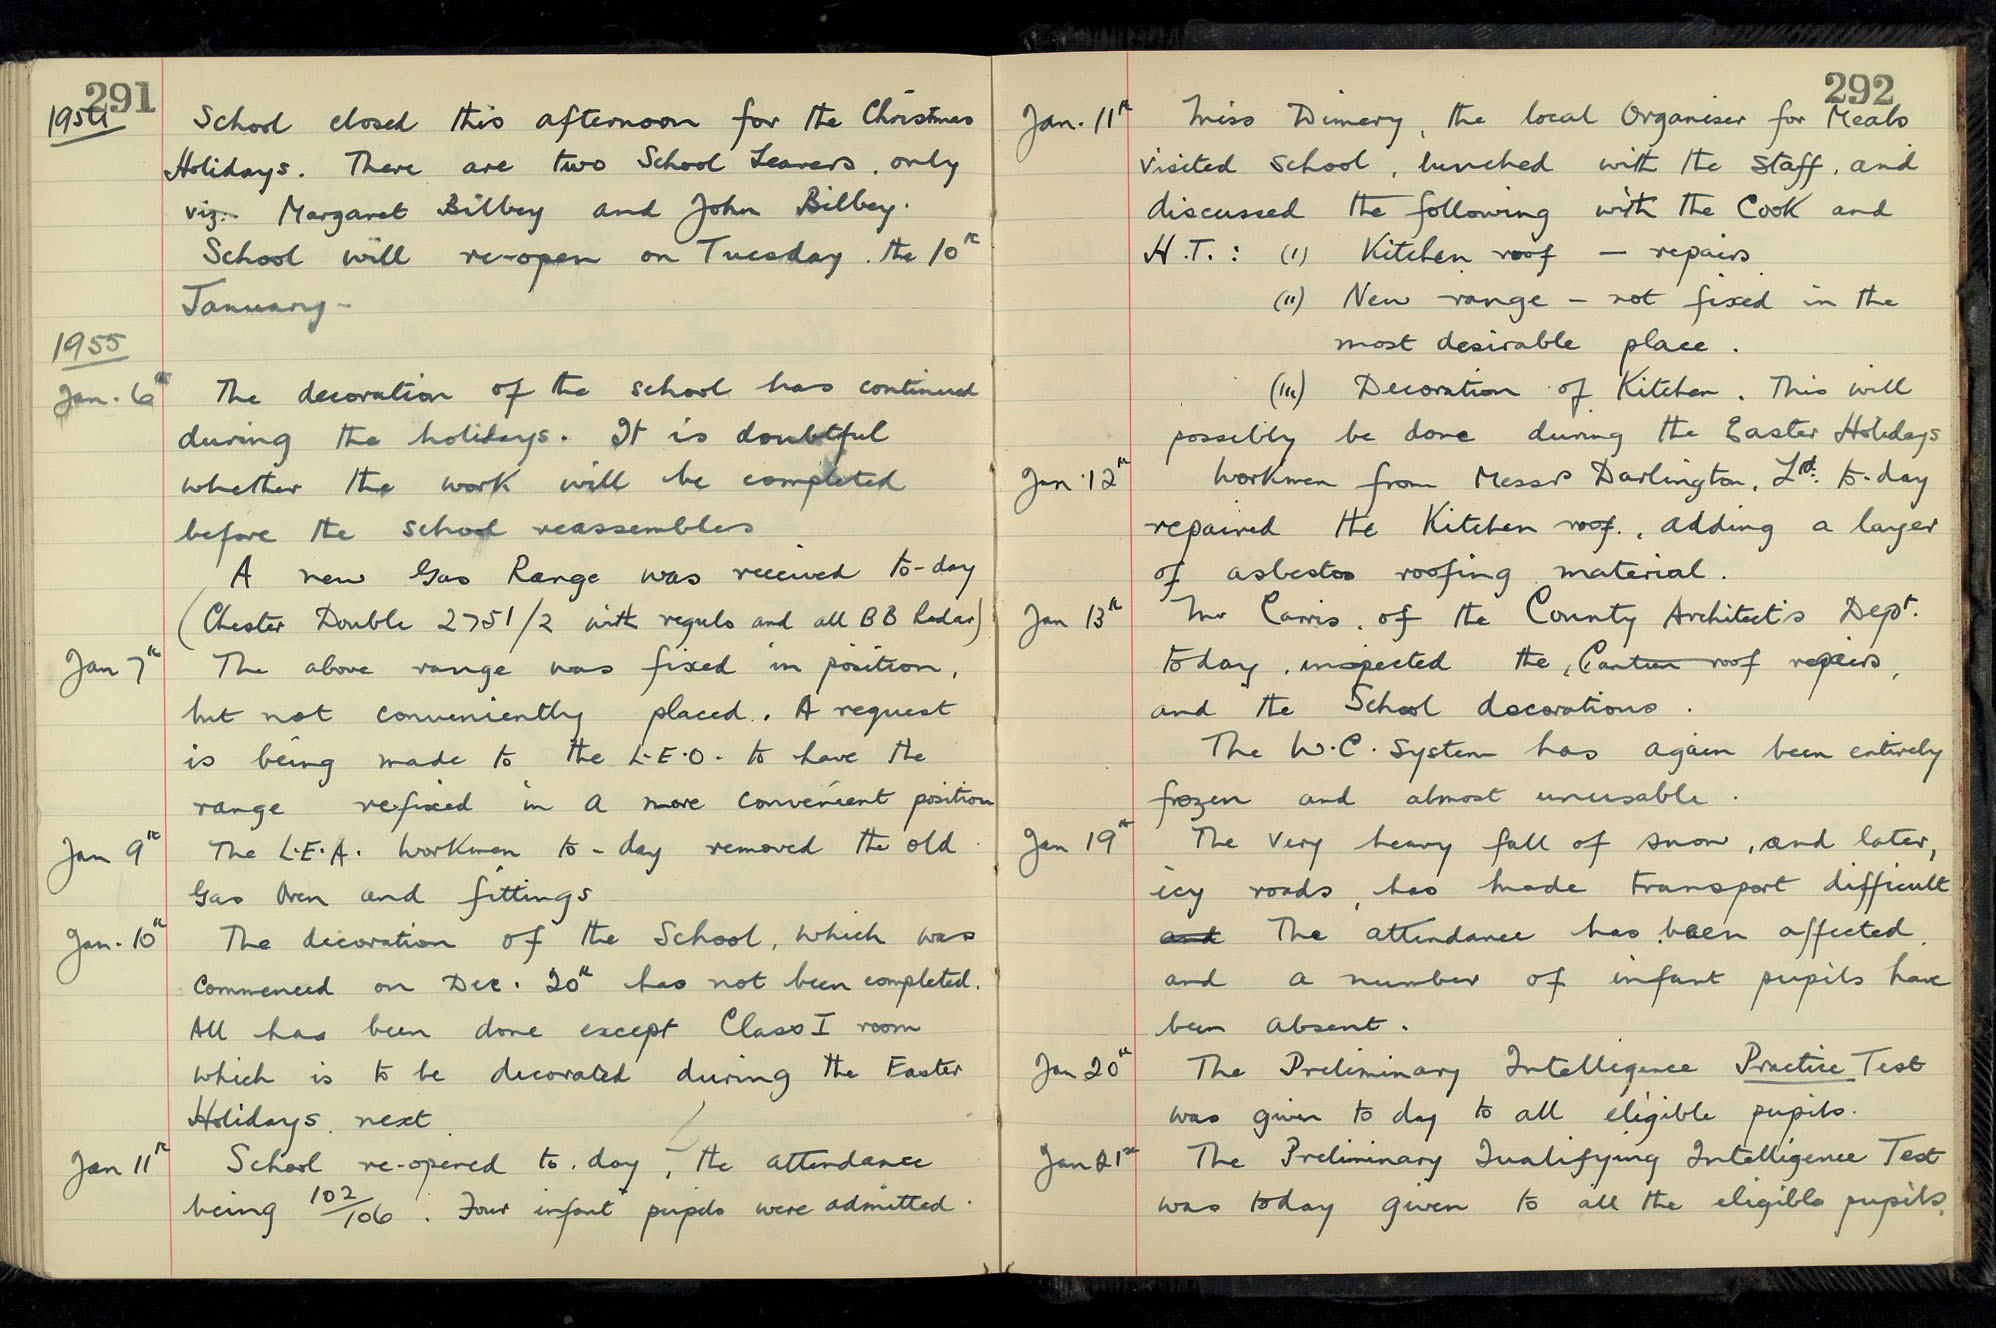 291
1954
School closed this afternoon for the Christmas
Holidays. There are two School Leavers, only
viz:- Margaret Bilbey and John Bilbey.
School will re-open on Tuesday, the 10th
January-
1955
Jan. 6th The decoration of the school has continued
during the holidays. It is doubtful
whether the work will be completed
before the school reassembles
A new Gas Range was received to-day
(Chester Double 2751/2 with regulo and all BB
Jan 7th The above range was fixed in position,
but not conveniently placed. A request
is being made to the L.E.O. to have the
range refixed in a more convenient position
Jan 9th The L.E.A. workmen to-day removed the old
Gas Oven and fittings
Jan. 10th The decoration of the School, which was
commenced on Dec. 20th has not been completed.
All has been done except Class I room
which is to be decorated during the Easter
Holidays, next.
Jan 11th School re-opened to.day, the attendance
being 102/106. Four infant pupils were admitted.
292
Jan. 11th Miss Dimery, the local Organiser for Meals
visited school, lunched with the staff, and
discussed the following with the Cook and
H.T.: (i) Kitchen roof — repairs
(ii) New range — not fixed in the
most desirable place.
(iii) Decoration of Kitchen. This will
possibly be done during the Easter Holidays
Jan. 12th Workmen from Messrs Darlington, Ltd. to-day
repaired the Kitchen roof, adding a layer
of asbestos roofing material.
Jan 13th Mr of the County Architect's Dept.
today, inspected the, Canteen roof repairs,
and the School decorations.
The W.C. System has again been entirely
frozen and almost unusable.
Jan 19th The very heavy fall of snow, and later,
icy roads, has made transport difficult
and The attendance has been affected,
and a number of infant pupils have
been absent.
Jan 20th The Preliminary Intelligence Practice Test
was given to day to all eligible pupils.
Jan 21st The Preliminary Qualifying Intelligence Test
was today given to all the eligible pupils.